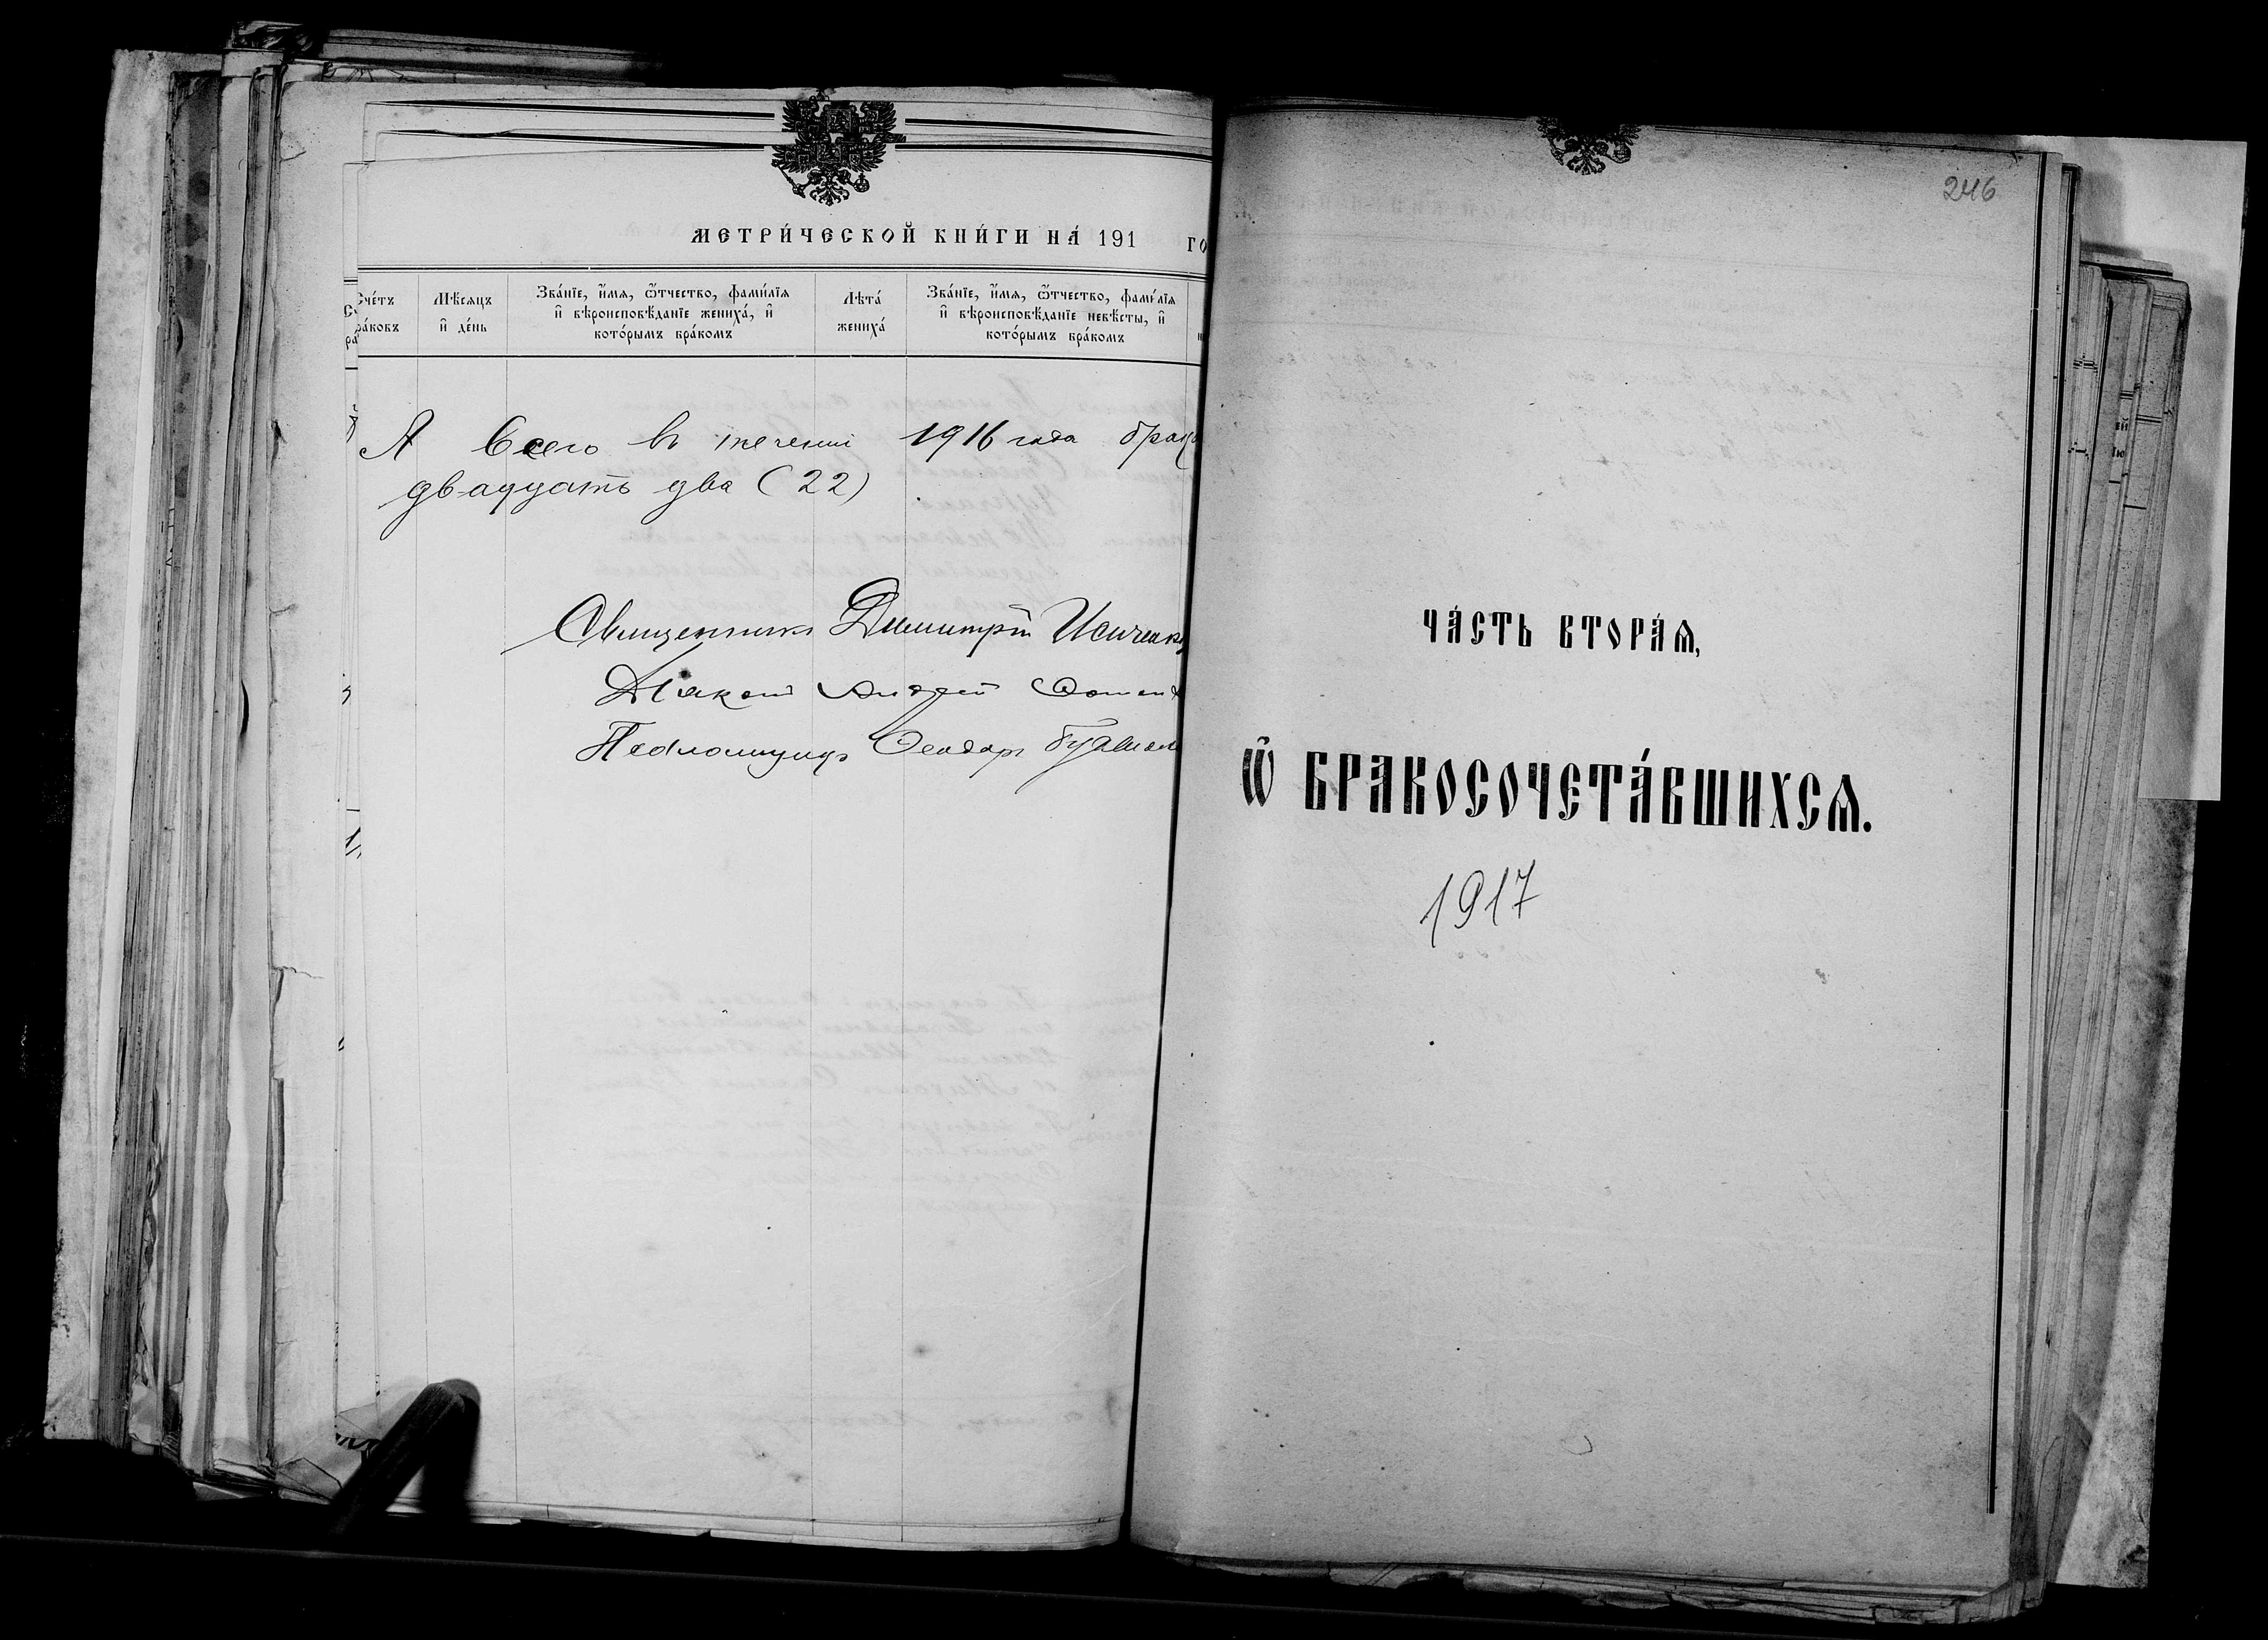 МЕТРИ́ЧЕСКОЙ КНИ́ГИ НА́ 191 ГО
Сче́тъ ра́ковъ
Мѣ́сѧцъ и҆ де́нь
Зва́нїе, и҆́мѧ, ѻ҆́тчество, фами́лїѧ и҆ вѣроисповѣ́данїе жениха́, и҆ кото́рымъ бра́комъ
Лѣта́ жениха́
Зва́нїе, и҆́мѧ, ѻ҆́тчество, фами́лїѧ и҆ вѣроисповѣ́данїе невѣ́сты, и҆ кото́рымъ бра́комъ
А Всего въ течении 1916 года брак
двадцать два (22)
Священникъ Димитрій Исиченко
Діаконъ Андрей
Псаломщикъ Ѳеодоръ
246
ЧА́СТЬ ВТОРА́Ѧ,
Ѽ БРАКОСОЧЕТА́ВШИХСѦ.
1917